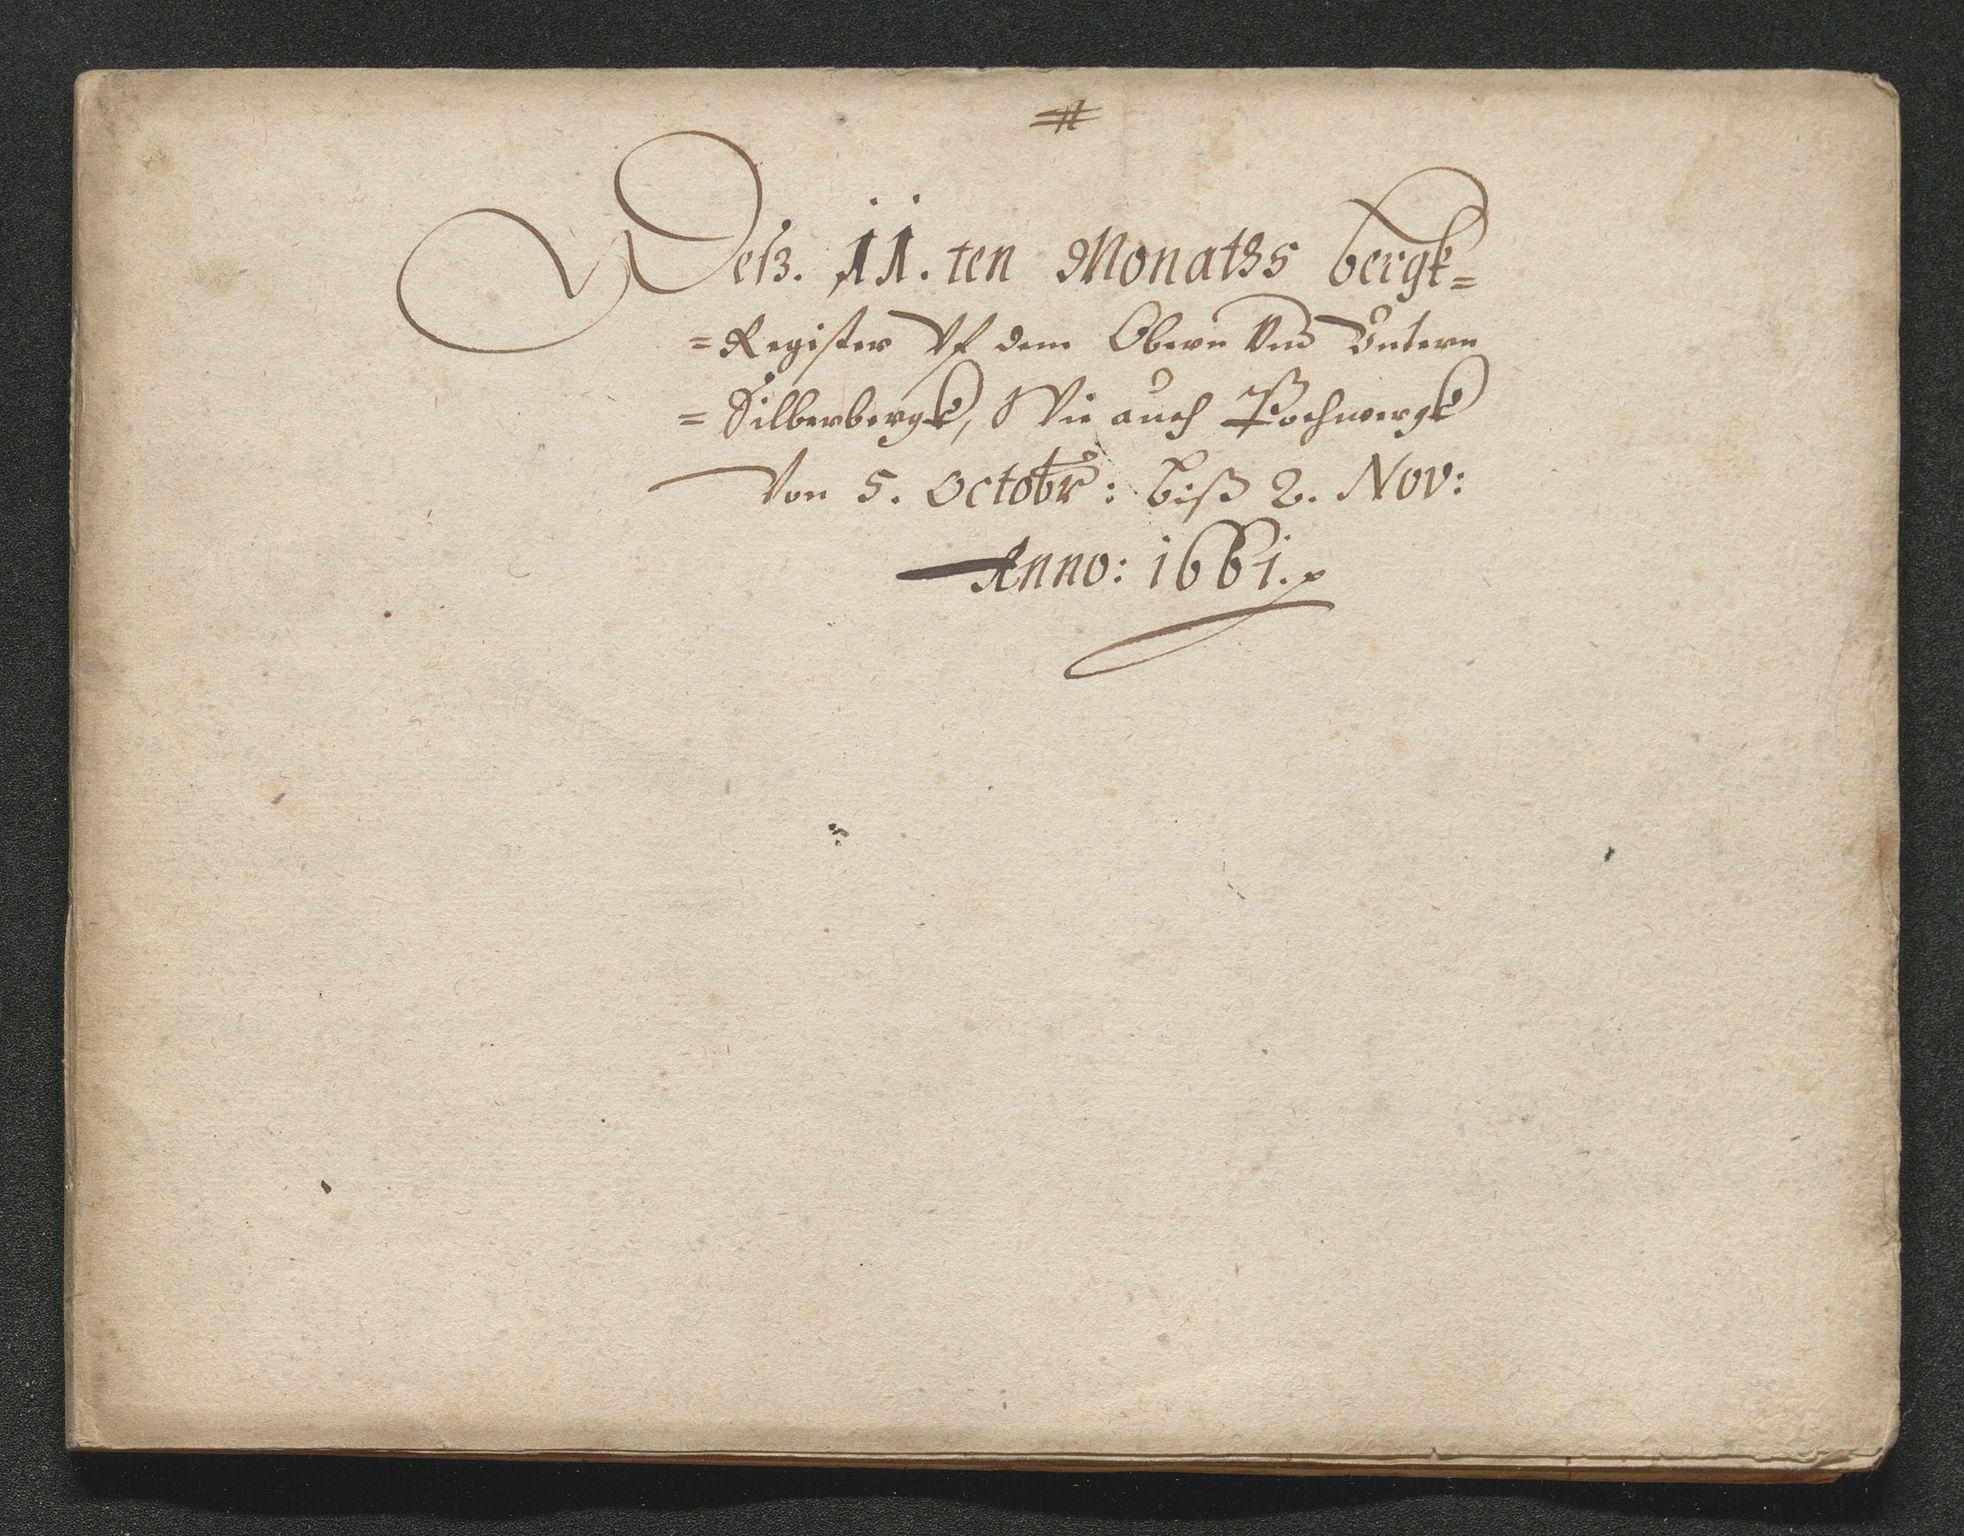 #
Deß. 11.ten Monaths bergk=
=Register Vf dem Obern Vnd Vntern
=Silberbergk, Wie auch Pochwergk
Von 5. Octobr: biß 2. Nov:
Anno: 1661.